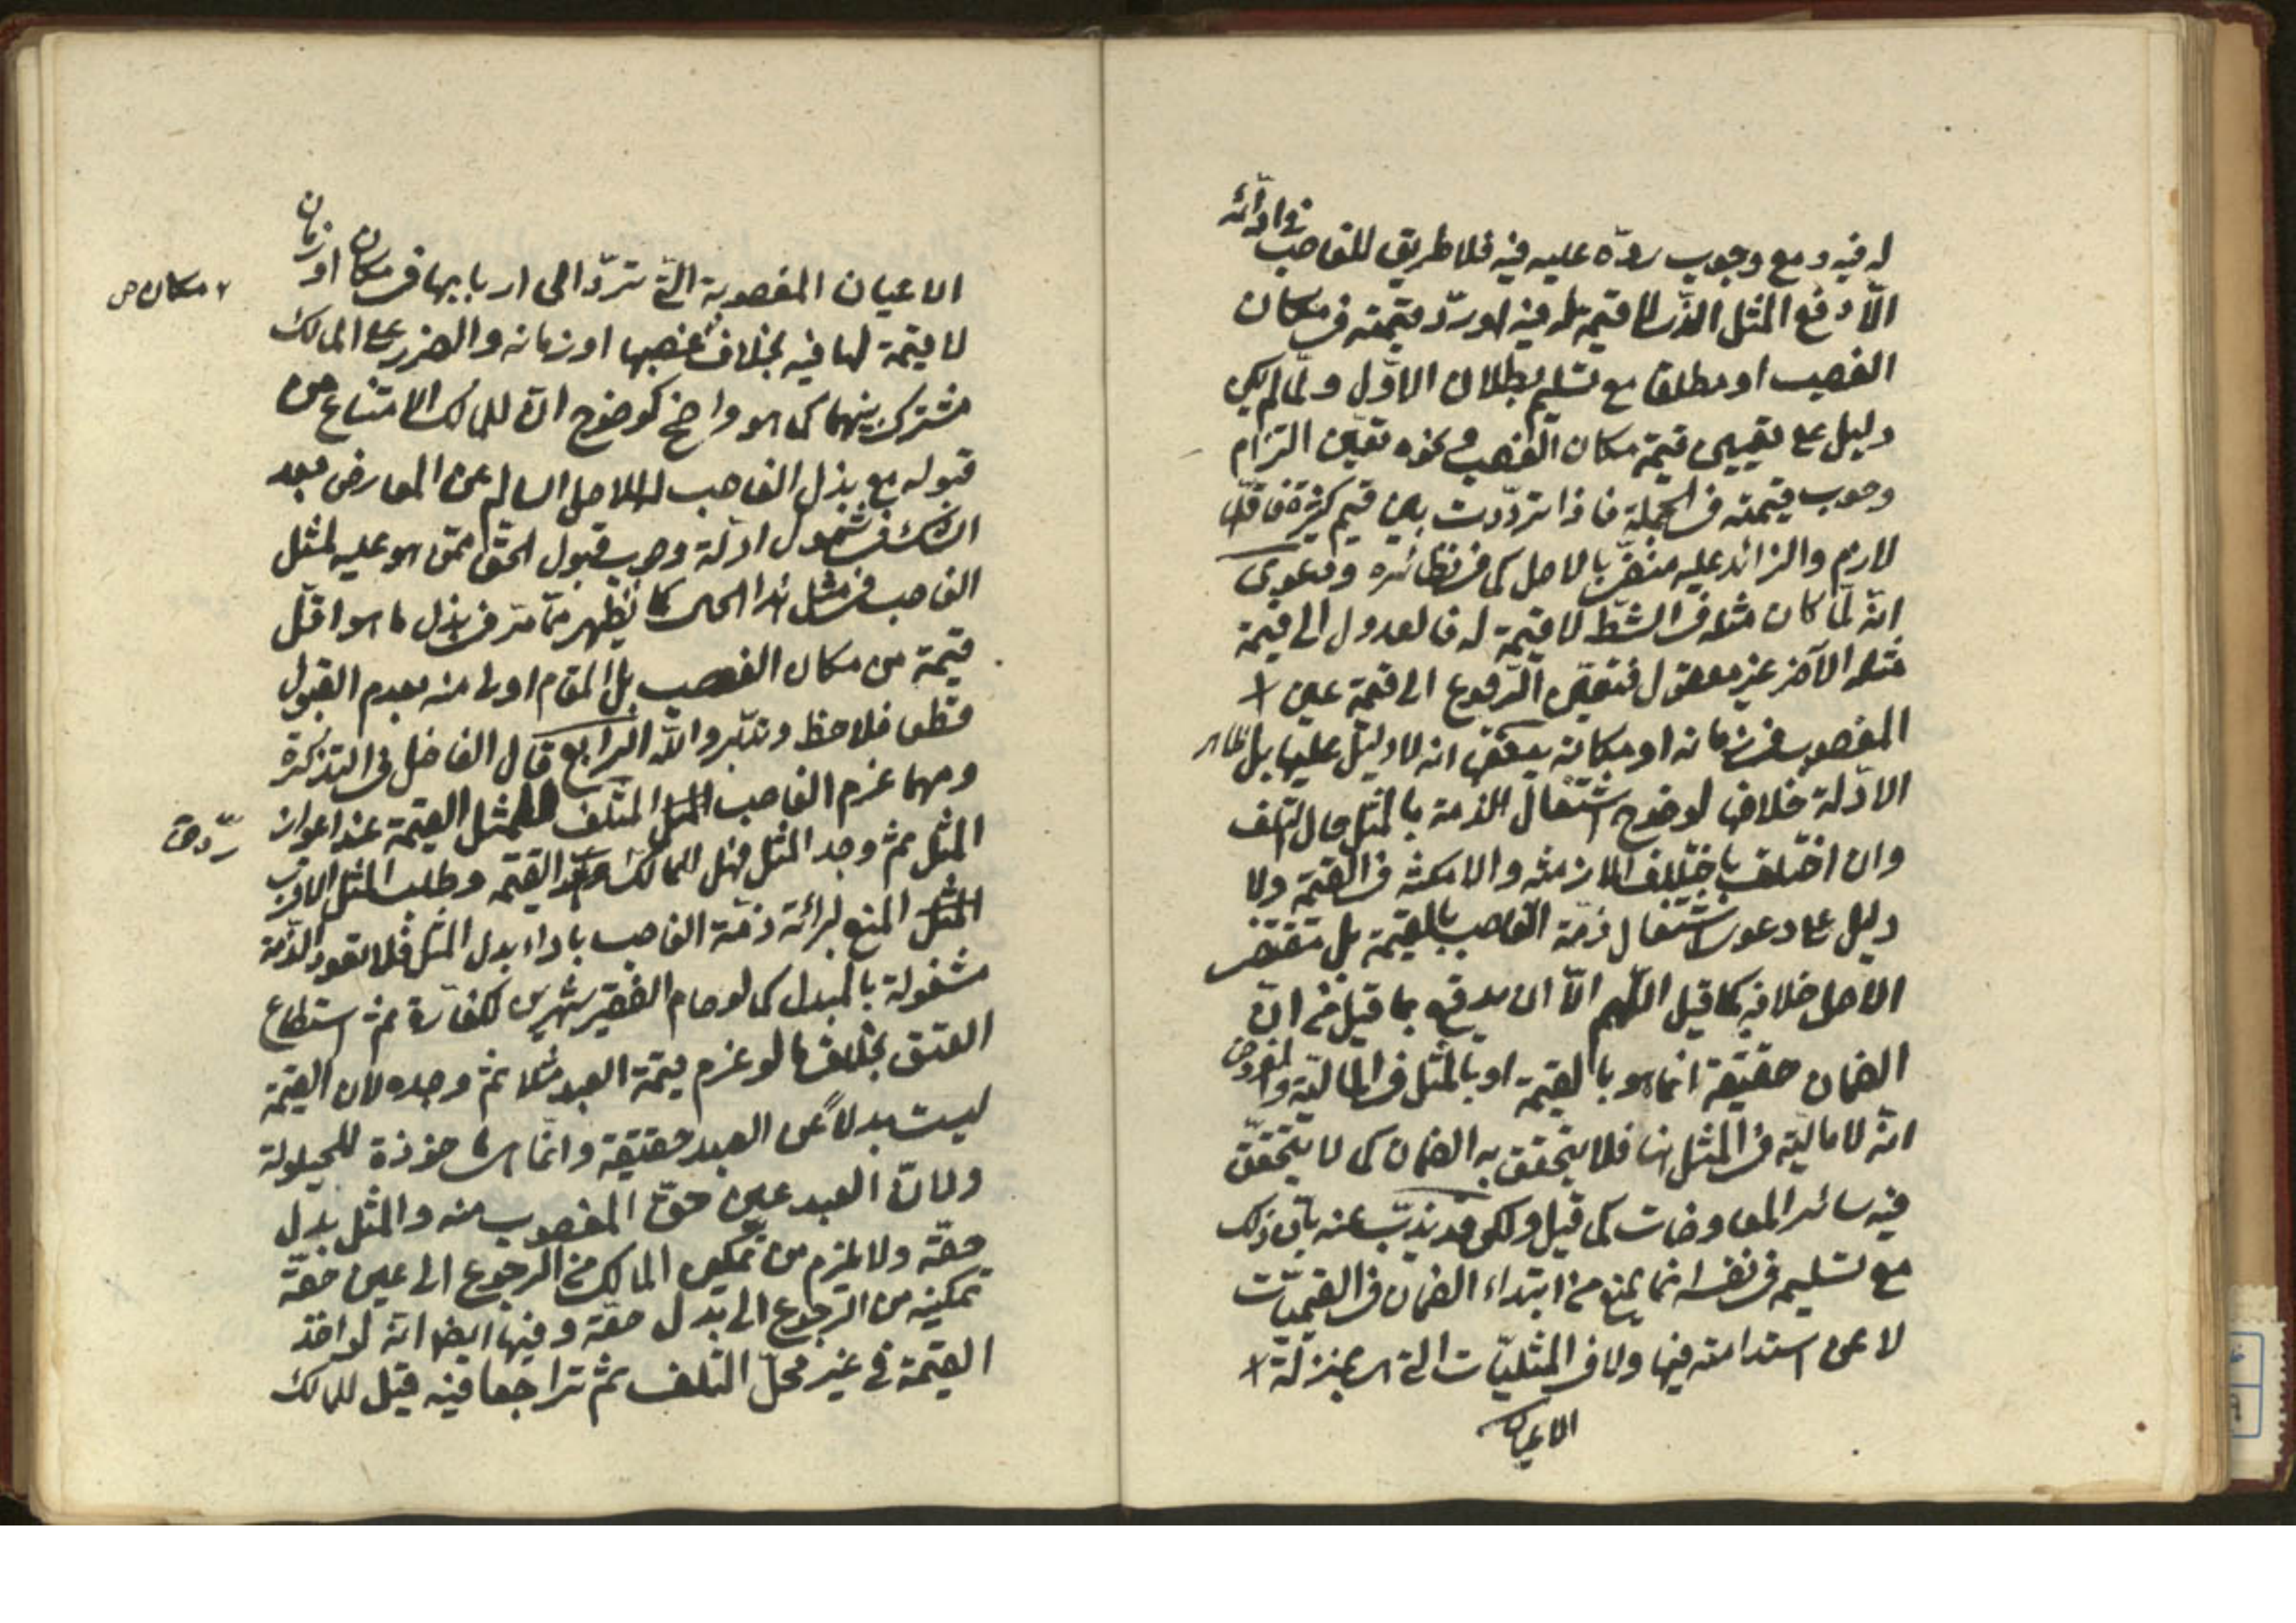 له فيه ومع وجوب ردّه عليه فيه فلا طريق للغاصب في ادائه
الّا دفع المثل الذي لا قيمة له فيه او ردّ قيمته في مكان
الغصب او مطلقا مع تسليم بطلان الاوّل ولمّا لم يكن
دليل على تعيين قيمة مكان الغصب ونحوه تعيّن التزام
وجوب قيمته في الجملة فاذا تردّدت بين قيم كثيرة فاقلّها
لازم والزائد عليه منفيّ بالاصل كما في نظائره ودعوى
انّه لمّا كان مثله في الشطّ لا قيمة له فالعدول الى قيمة
مثله الآخر غير معقول فتعيّن الرجوع الى قيمة عين
المغصوب في زمانه او مكانه يدفعها انه لا دليل عليها بل ظاهر
الادلّة خلافها لوضوح اشتغال الذمة بالمثل حال التلف
وان اختلف باختلاف الازمنة والامكنة في القيمة ولا
دليل على دعوى اشتغال ذمّة الغاصب بالقيمة بل مقتضى
الاصل خلافه كما قيل اللّهم الّا ان يدفع بما قيل من انّ
الضمان حقيقة انما هو بالقيمة او بالمثل في الماليّة والمفروض
انّه لا ماليّة في المثل هنا فلا يتحقق به الضمان كما لا يتحقّق
فيه سائر المعاوضات كما قيل ولكن قد يذبّ عنه بانّ ذلك
مع تسليمه في نفسه انما يمنع من ابتداء الضمان في القيميّات
لا عن استدامته فيها ولا في المثليّات التي هي بمنزلة
الاعيان
الاعيان المغصوبة التي تردّ الى اربابها في مكان او زمان
لا قيمة لها فيه بخلاف غصبها او زمانه والضرر على المالك
مكان ص
مشترك بينهما كما هو واضح كوضوح انّ للمالك الامتناع من
قبوله مع بذل الغاصب له للاصل السالم عن المعارض بعد
الشك في شمول ادلّة وجوب قبول الحقّ ممّن هو عليه لمثل
الغاصب في مثل هذا الحال كما يظهر ممّا مرّ في بذل ما هو اقلّ
قيمة من مكان الغصب بل المقام اولى منه بعدم القبول
قطعا فلاحظ وتدبّر واللّه الرابع قال الفاضل في التذكرة
ومهما غرم الغاصب المثل المتلف للمثل القيمة عند اعواز
المثل ثمّ وجد المثل فهل للمالك ردّ القيمة وطلب المثل الاقرب
ردّ ق
المثل المنع لبرائة ذمّة الغاصب باداء بدل المثل فلا تعود الذّمة
مشغولة بالمبدل كما لو صام الفقير شهرين لكفّارة ثمّ استطاع
العتق بخلاف ما لو غرم قيمة العبد مثلا ثمّ وجده لان القيمة
ليست بدلاً عن العبد حقيقة وانّما هي ماخوذة للحيلولة
ولانّ العبد عين حقّ المغصوب منه والمثل بدل
حقّه ولا يلزم من تمكين المالك من الرجوع الى عين حقّه
تمكينه من الرجوع الى بدل حقّه وفيها ايضا انّه لو اخذ
القيمة في غير محلّ التلف ثمّ تراجعا فيه قيل للمالك